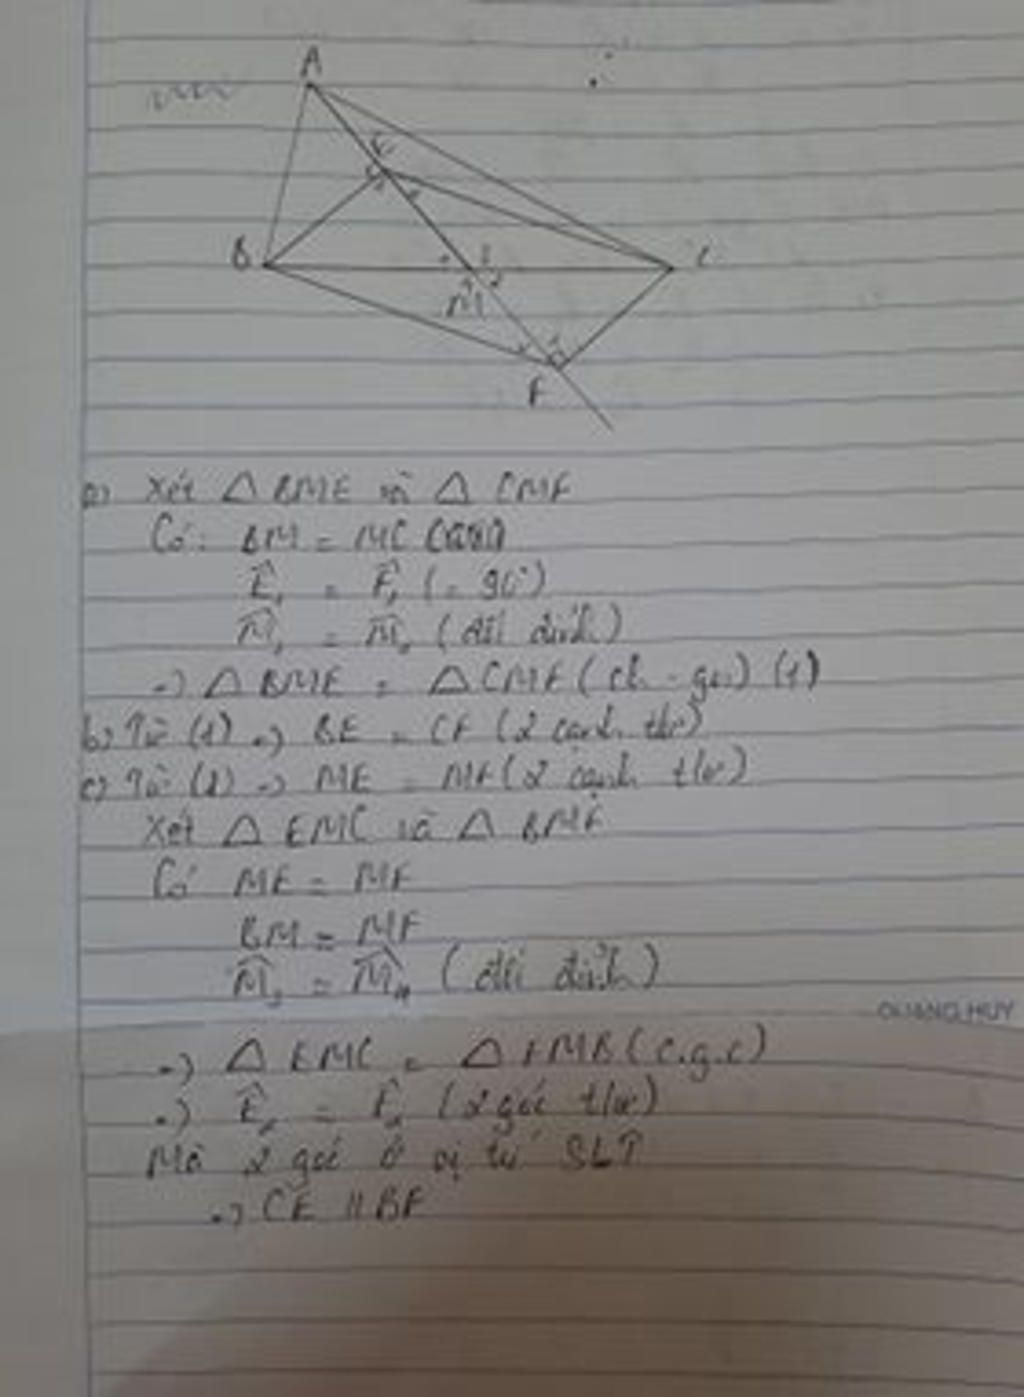 A
E
B
C
1
2
M
F
a) Xét △ BME và △ CMF
Có: BM = MC
Ê₁ = F̂₁ (= 90°)
M̂₁ = M̂₂ (đối đỉnh)
=> △ BME = △ CMF (ch - gn) (1)
b) Từ (1) => BE = CF (2 cạnh t/ư)
c) Từ (1) => ME = MF (2 cạnh t/ư)
Xét △ EMC và △ BMF
Có ME = MF
BM = MF
M̂₃ = M̂₄ (đối đỉnh)
QUANG HUY
=> △ EMC = △ FMB (c.g.c)
=> Ê₂ = F̂₂ (2 góc t/ư)
Mà 2 góc ở vị trí SLT
=> CE // BF